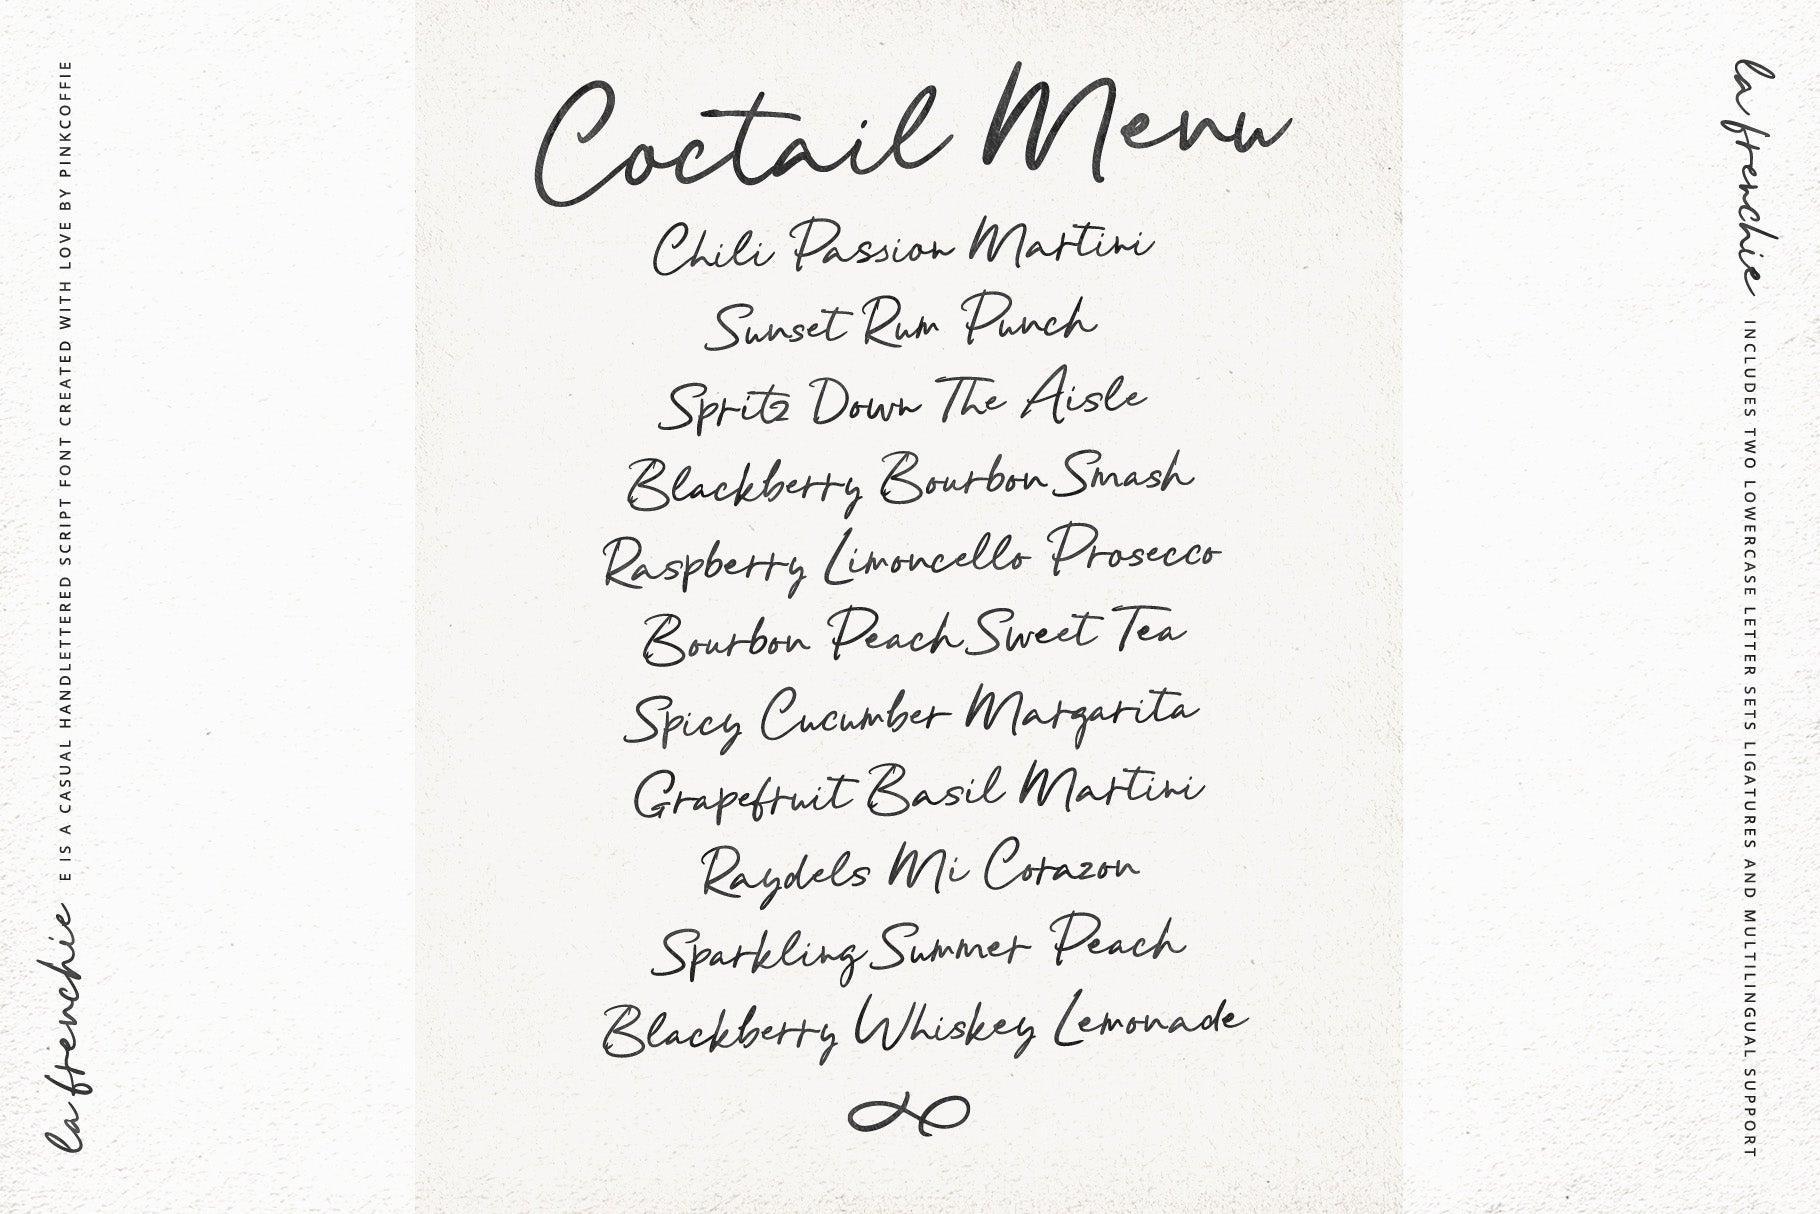 Coctail Menu
Chili Passion Martini
Sunset Rum Punch
Spritz Down The Aisle
Blackberry Bourbon Smash
Raspberry Limoncello Prosecco
Bourbon Peach Sweet Tea
Spicy Cucumber Margarita
Grapefruit Basil Martini
Raydels Mi Corazon
Sparkling Summer Peach
Blackberry Whiskey Lemonade
la frenchie E IS A CASUAL HANDLETTERED SCRIPT FONT CREATED WITH LOVE BY PINKCOFFIE
la frenchie INCLUDES TWO LOWERCASE LETTER SETS LIGATURES AND MULTILINGUAL SUPPORT